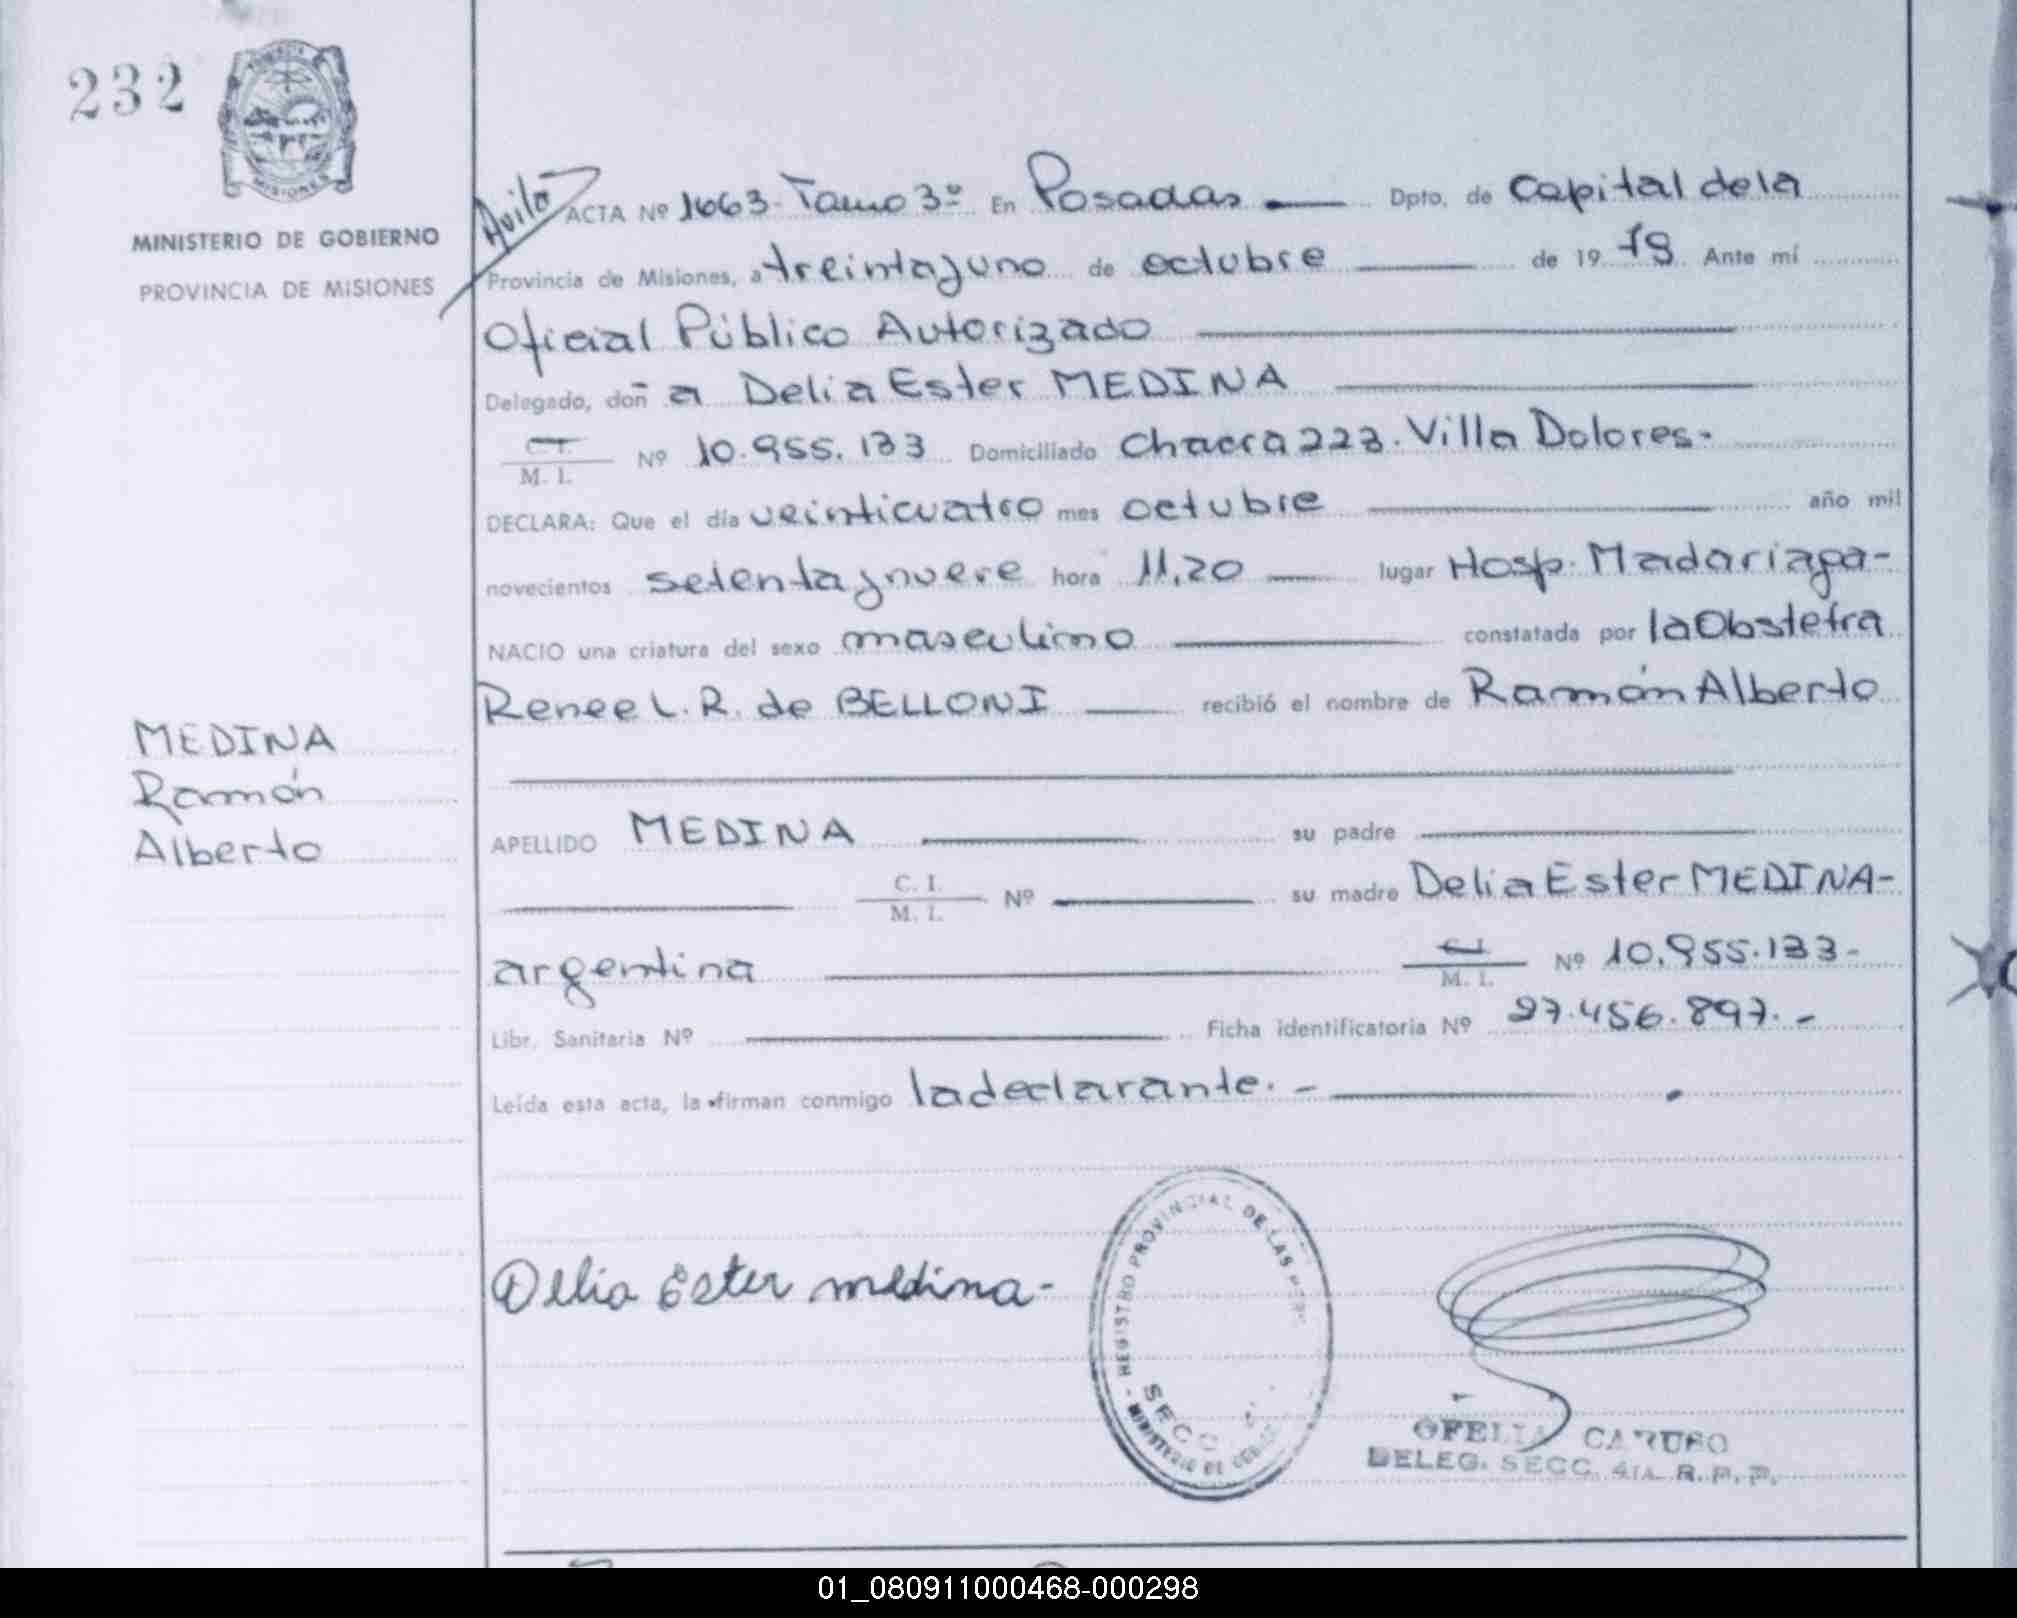 232
MISIONES
MINISTERIO DE GOBIERNO
PROVINCIA DE MISIONES
Avila
ACTA Nº 1663 - Tomo 3º En Posadas — Dpto. de Capital de la
Provincia de Misiones, a treinta y uno de octubre — de 19 79 Ante mí
Oficial Público Autorizado —
Delegado, doñ a Delia Ester MEDINA —
C. I. / M. I. Nº 10.955.133 Domiciliado Chacra 223. Villa Dolores.-
DECLARA: Que el día veinticuatro mes octubre — año mil
novecientos setenta y nueve hora 11,20 — lugar Hosp. Madariaga-
NACIO una criatura del sexo masculino — constatada por la Obstetra
Renee L. R. de BELLONI — recibió el nombre de Ramón Alberto
MEDINA
Ramón
Alberto
APELLIDO MEDINA — su padre —
— C. I. / M. I. Nº — su madre Delia Ester MEDINA-
argentina — C. I. / M. I. Nº 10.955.133-
Libr. Sanitaria Nº — Ficha identificatoria Nº 27.456.897.-
Leída esta acta, la firman conmigo la declarante. -
Delia Ester medina-
REGISTRO PROVINCIAL DE LAS
SECC
MINISTERIO DE
OFELIA CARUSO
DELEG. SECC. 4ta. R. P. P.
01_080911000468-000298